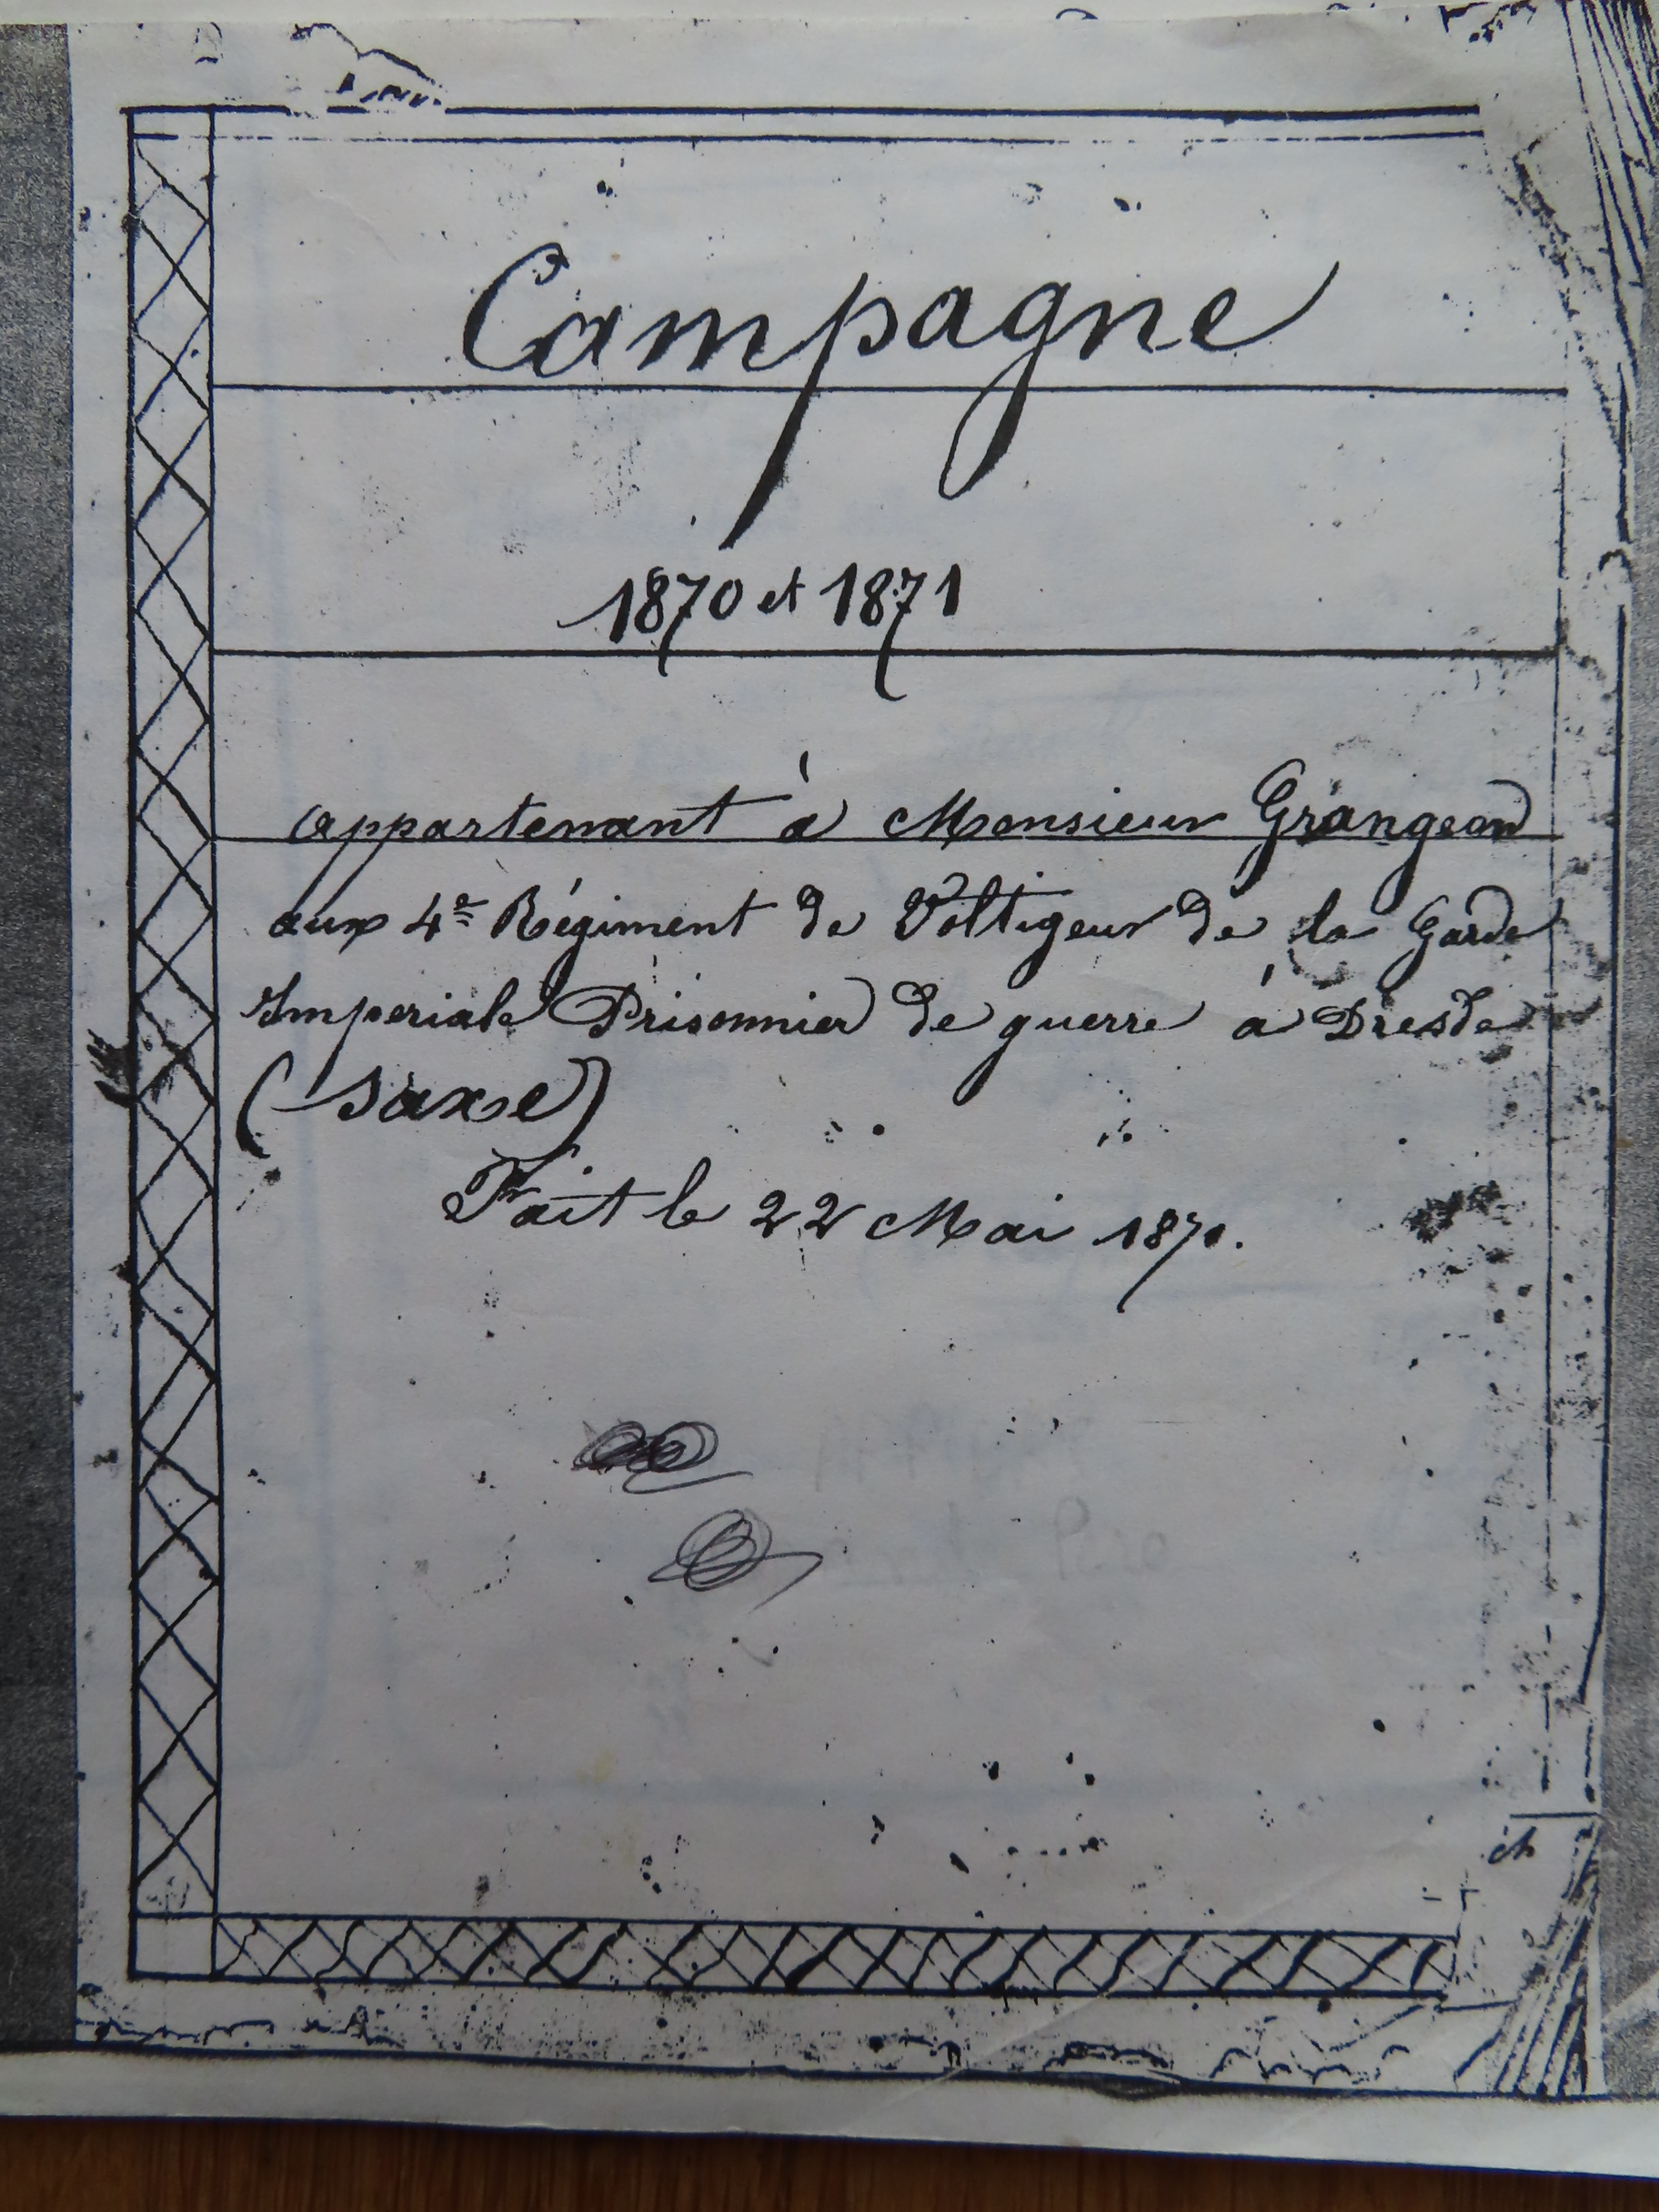 Campagne
1870 et 1871
appartenant à Monsieur Grangeon
aux 4e Régiment de Voltigeur de la Garde
Imperiale Prisonnier de guerre à Dresde
(Saxe)
Fait le 22 Mai 1871.
ch